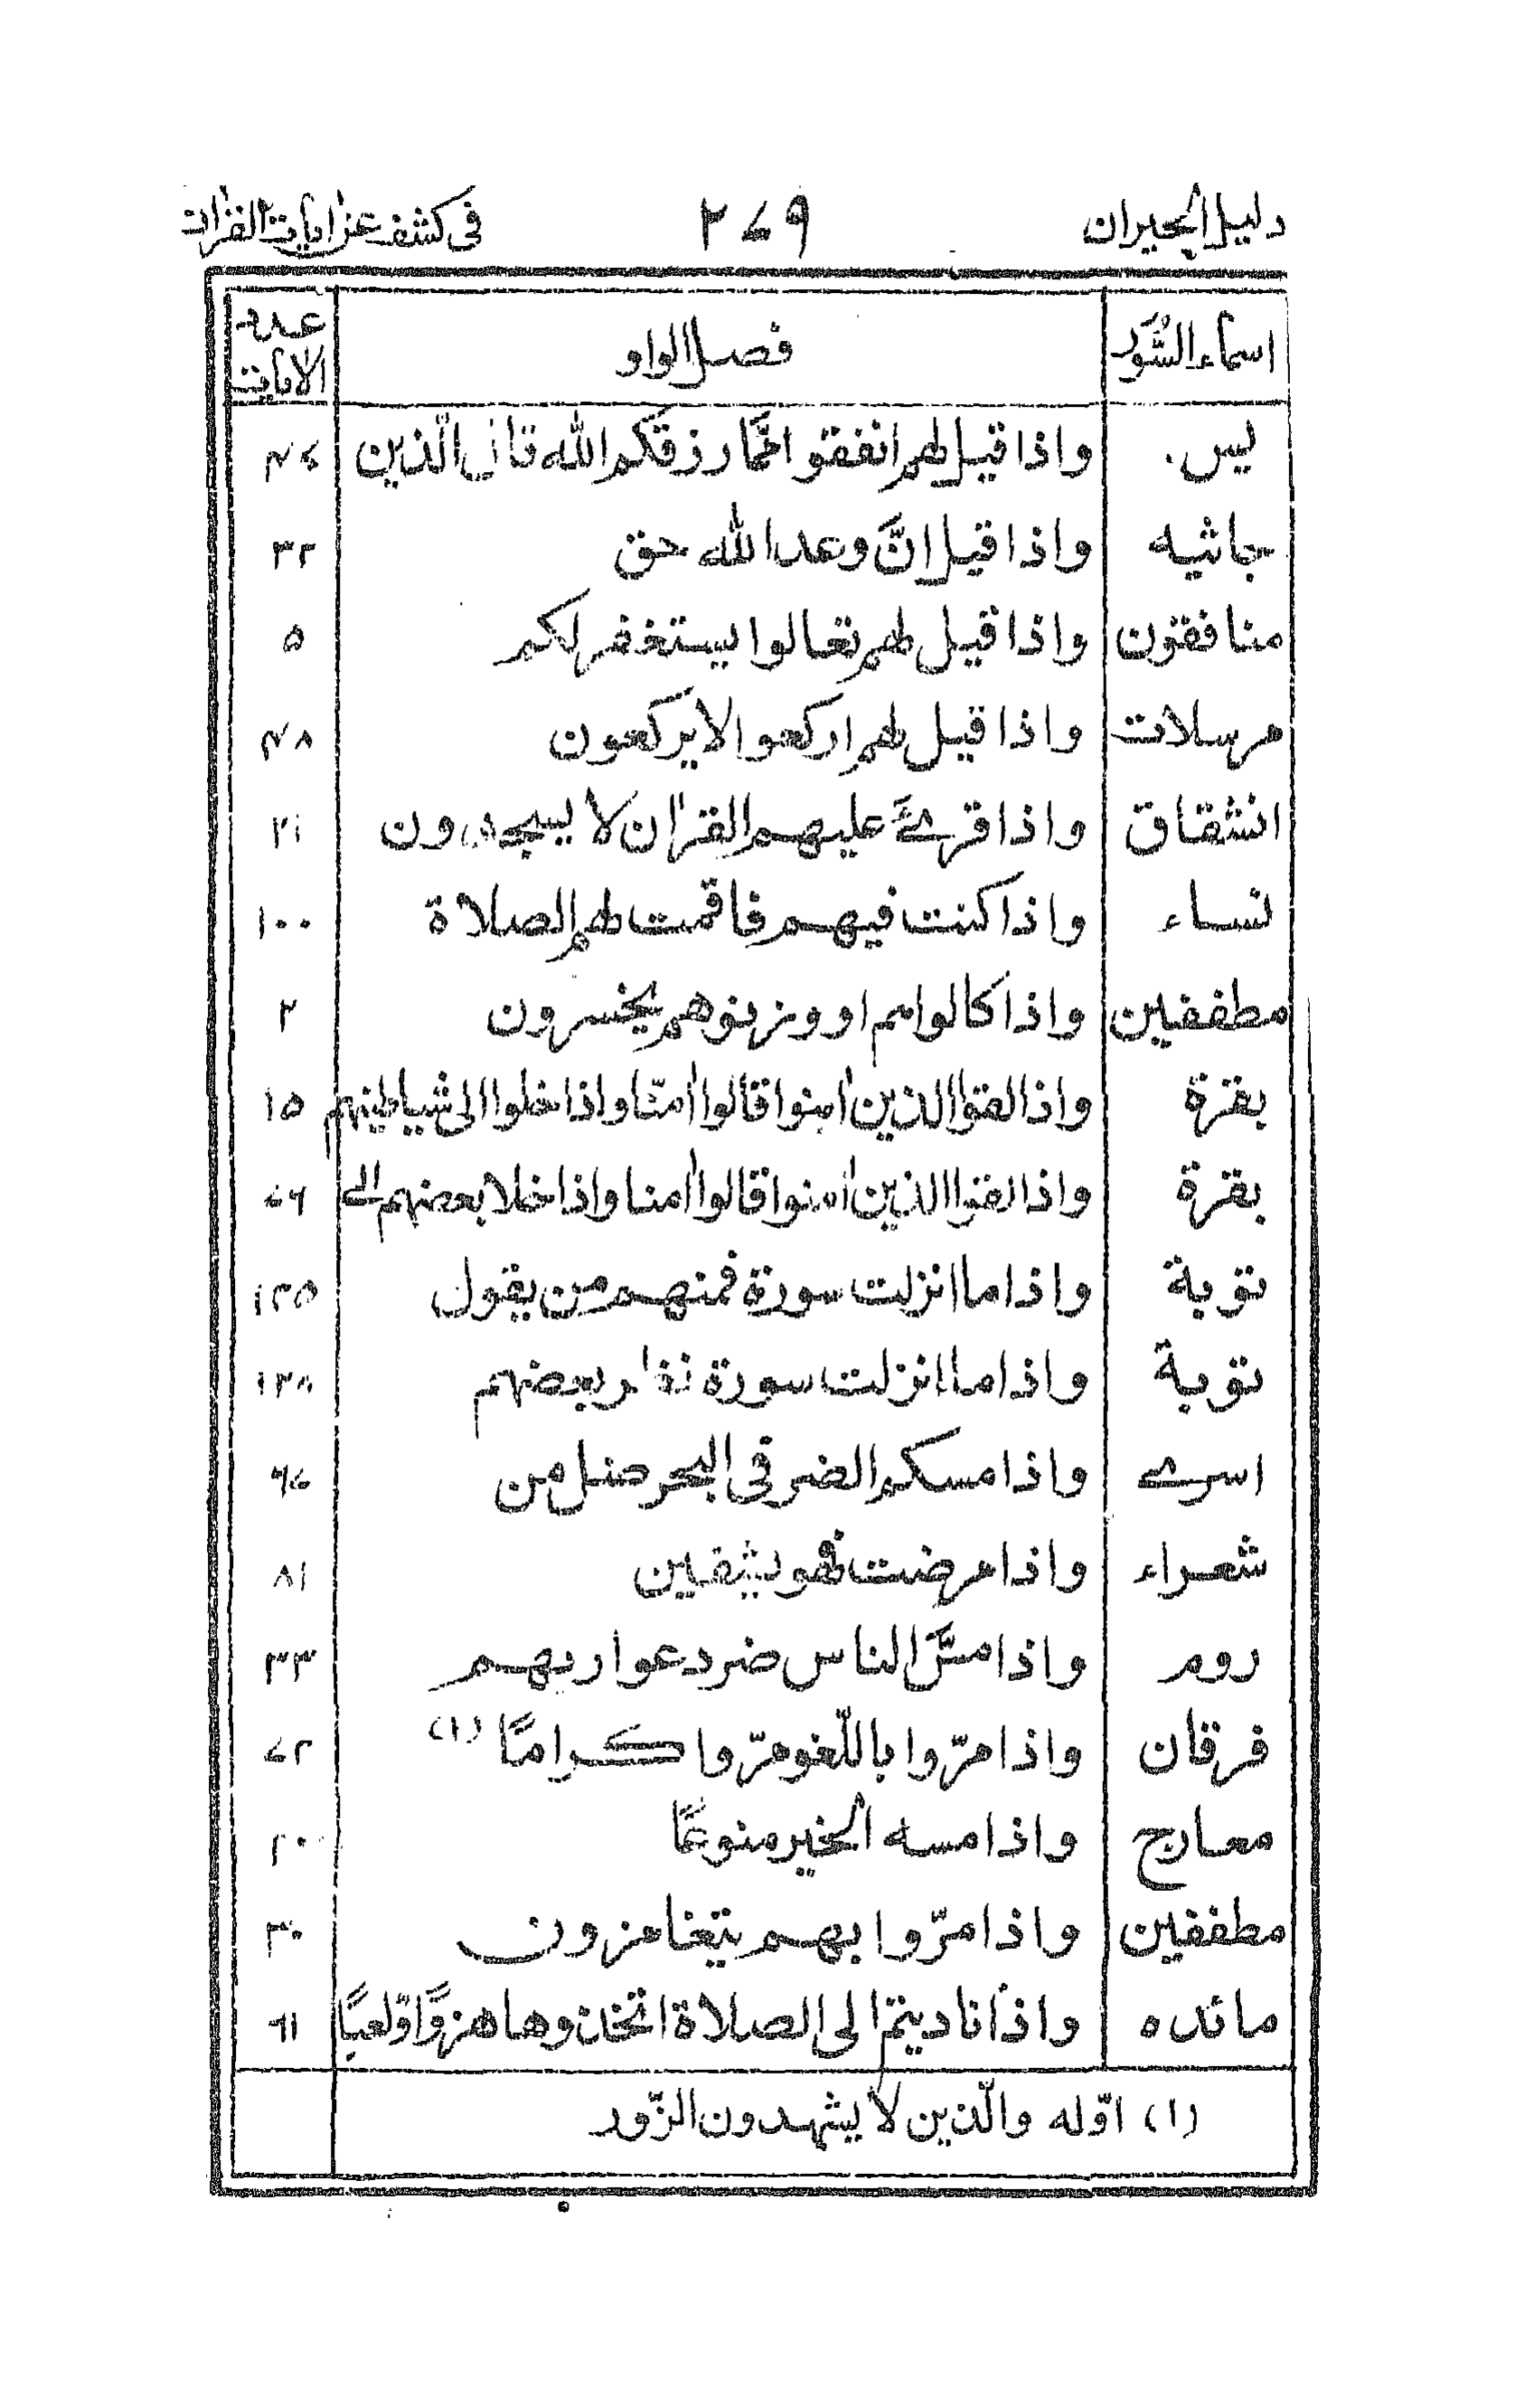 دليل الحيران ٢٧٩ في كشف عن اٰيات القراٰن
اسماء السُّوَر فصل الواو عدد الايات
يس واذا قيل لهم انفقوا ممّا رزقكم الله قال الّذين ٤٧
جاثيه واذا قيل انَّ وعد الله حق ٣٢
منافقون واذا قيل لهم تعالوا يستغفر لكم ٥
مرسلات واذا قيل لهم اركعوا لا يركعون ٤٨
انشقاق واذا قرئَ عليهم القراٰن لا يسجدون ٢١
نساء واذا كنت فيهم فاقمت لهم الصلاة ١٠٠
مطففين واذا كالوهم او وزنوهم يخسرون ٢
بقرة واذا لقوا الذين اٰمنوا قالوا اٰمنّا واذا خلوا الى شياطينهم ١٥
بقرة واذا لقوا الذين اٰمنوا قالوا اٰمنا واذا خلا بعضهم الى ٧٦
توبة واذا ما انزلت سورة فمنهم من يقول ١٢٥
توبة واذا ما انزلت سورة نظر بعضهم
اسرى واذا مسكم الضر في البحر ضل من
شعراء واذا مرضت فهو يشفين ٨١
روم واذا مسَّ الناس ضر دعوا ربهم ٣٣
فرقان واذا مرّوا باللّغو مرّوا كرامًا (١) ٧٢
معارج واذا مسه الخير منوعًا ٢٠
مطففين واذا مرّوا بهم يتغامزون ٣٠
مائده واذا ناديتم الى الصلاة اتخذوها هزوًا وّلعبًا ٦١
(١) اوّله والّذين لا يشهدون الزّور